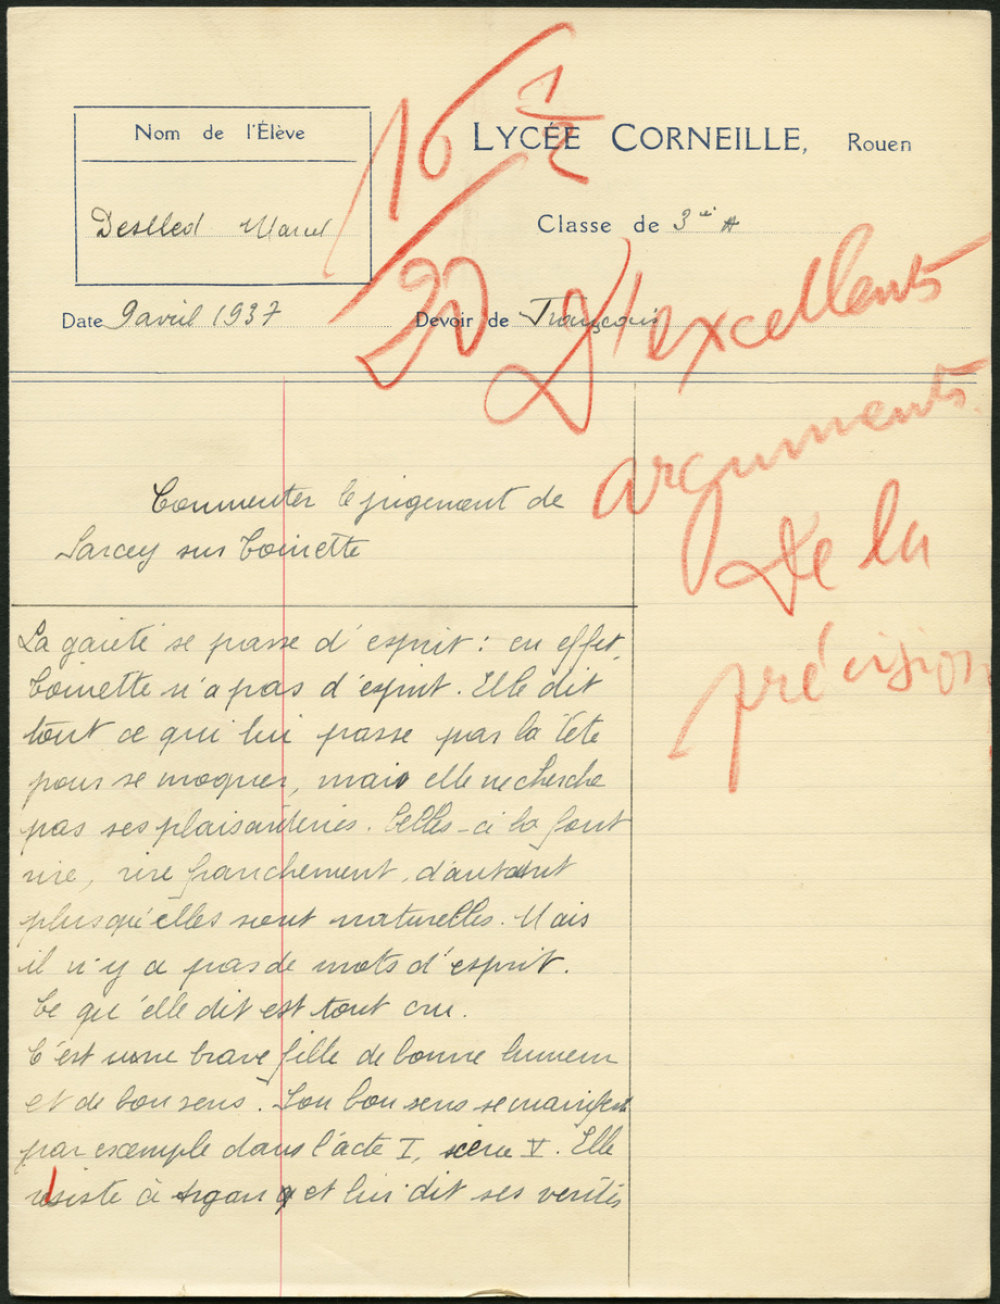 Nom de l'Élève
LYCÉE CORNEILLE, Rouen
16 1/2
20
Marcel
Classe de 3è A
Date 9 avril 1937
Devoir de Français
D'excellents
arguments.
De la
précision
Commenter le jugement de
Sarcey sur Toinette
La gaieté se passe d'esprit : en effet,
Toinette n'a pas d'esprit. Elle dit
tout ce qui lui passe par la tête
pour se moquer, mais elle ne cherche
pas ses plaisanteries. Celles-ci la font
rire, rire franchement, d'autant
plus qu'elles sont naturelles. Mais
il n'y a pas de mots d'esprit.
Ce qu'elle dit est tout cru.
C'est une brave fille de bonne humeur
et de bon sens. Son bon sens se manifeste
par exemple dans l'acte I, scène V. Elle
résiste à Argan et lui dit ses vérités